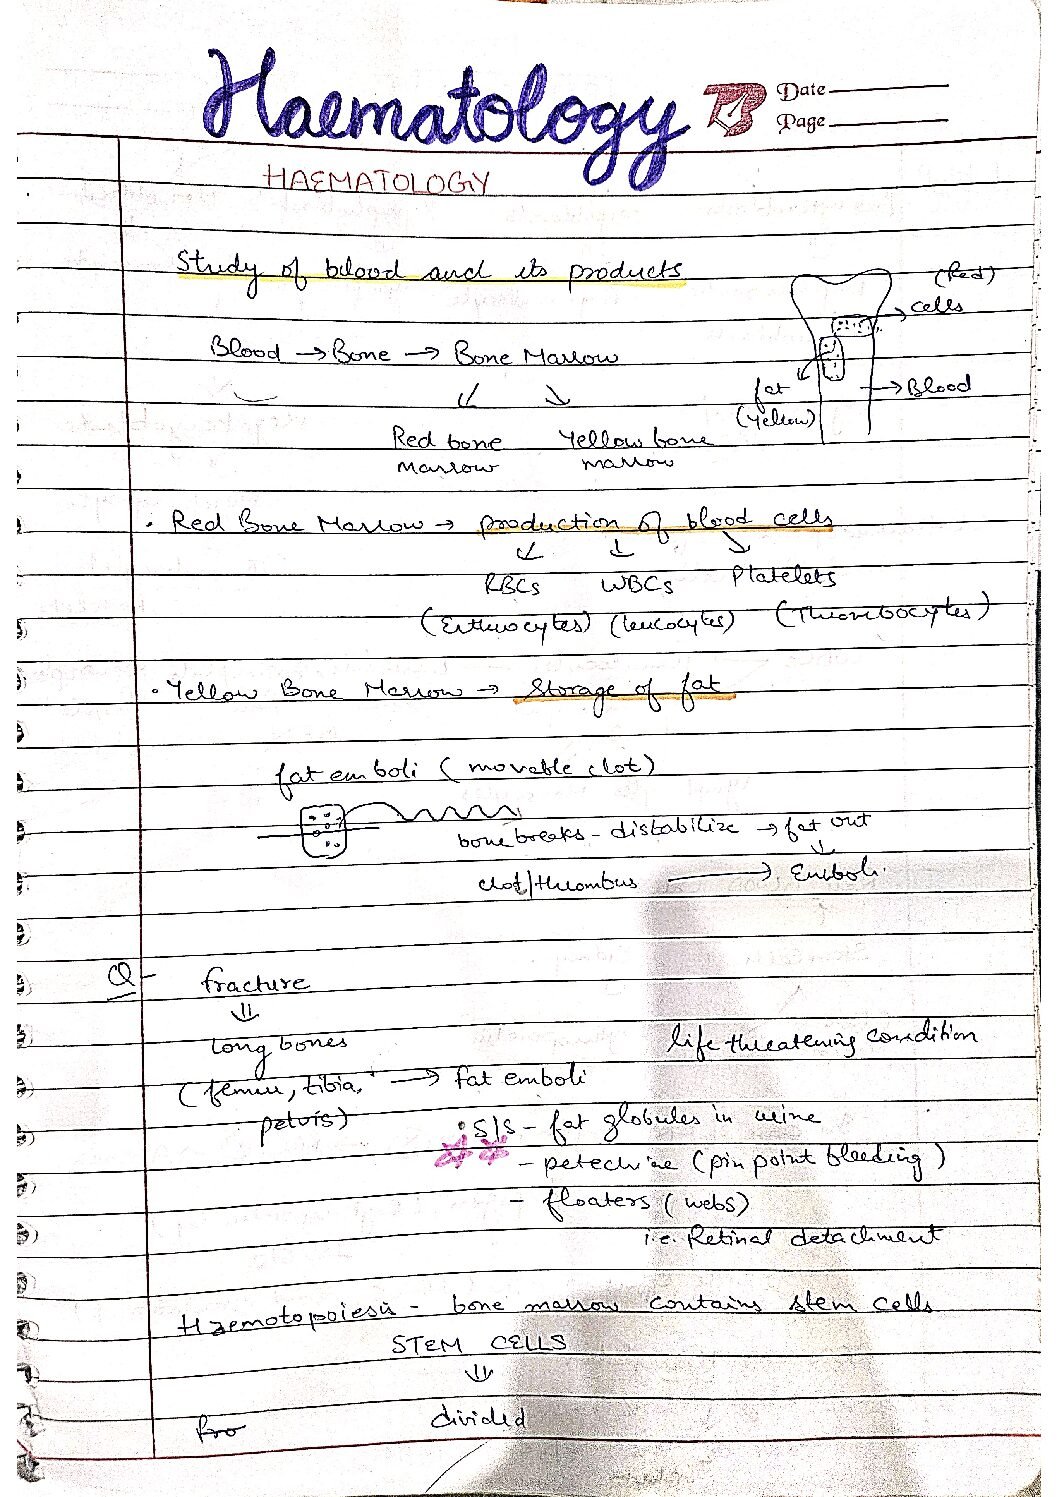 Haematology
Date
Page
HAEMATOLOGY
Study of blood and its products
(Red)
cells
Blood → Bone → Bone Marrow
fat
(yellow)
→ Blood
Red bone marrow
Yellow bone marrow
· Red Bone Marrow → production of blood cells
RBCs WBCs Platelets
(Erthrocytes) (leucocytes) (Thrombocytes)
· Yellow Bone Marrow → Storage of fat
fat emboli (movable clot)
bone breaks - distabilize → fat out
clot/thrombus → Emboli
Q - fracture
Long bones
life threatening condition
(femur, tibia, → fat emboli
pelvis)
• S/S - fat globules in urine
- petechiae (pin point bleeding)
- floaters (webs)
i.e. Retinal detachment
Haemotopoiesis - bone marrow contains stem cells
STEM CELLS
divided